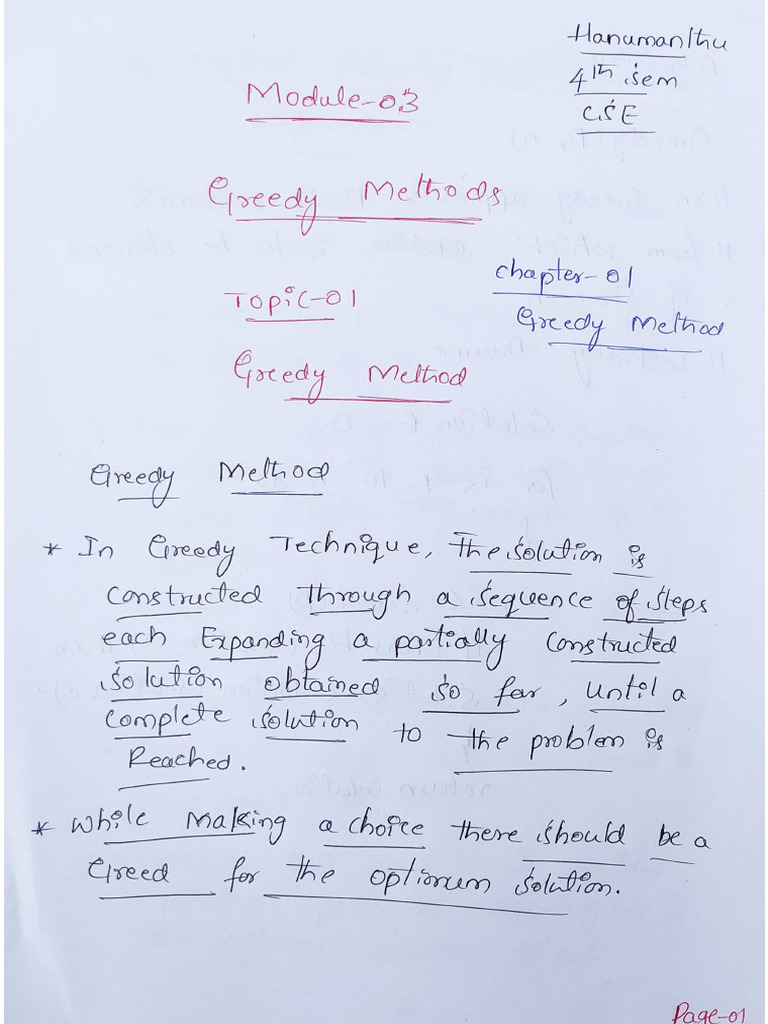 Hanumanthu
4th sem
CSE
Module-03
Greedy Methods
Chapter-01
Greedy Method
Topic-01
Greedy Method
Greedy Method
* In Greedy Technique, the solution is
constructed through a sequence of steps
each Expanding a partially constructed
solution obtained so far, until a
complete solution to the problem is
Reached.
* While making a choice there should be a
Greed for the optimum solution.
Page-01